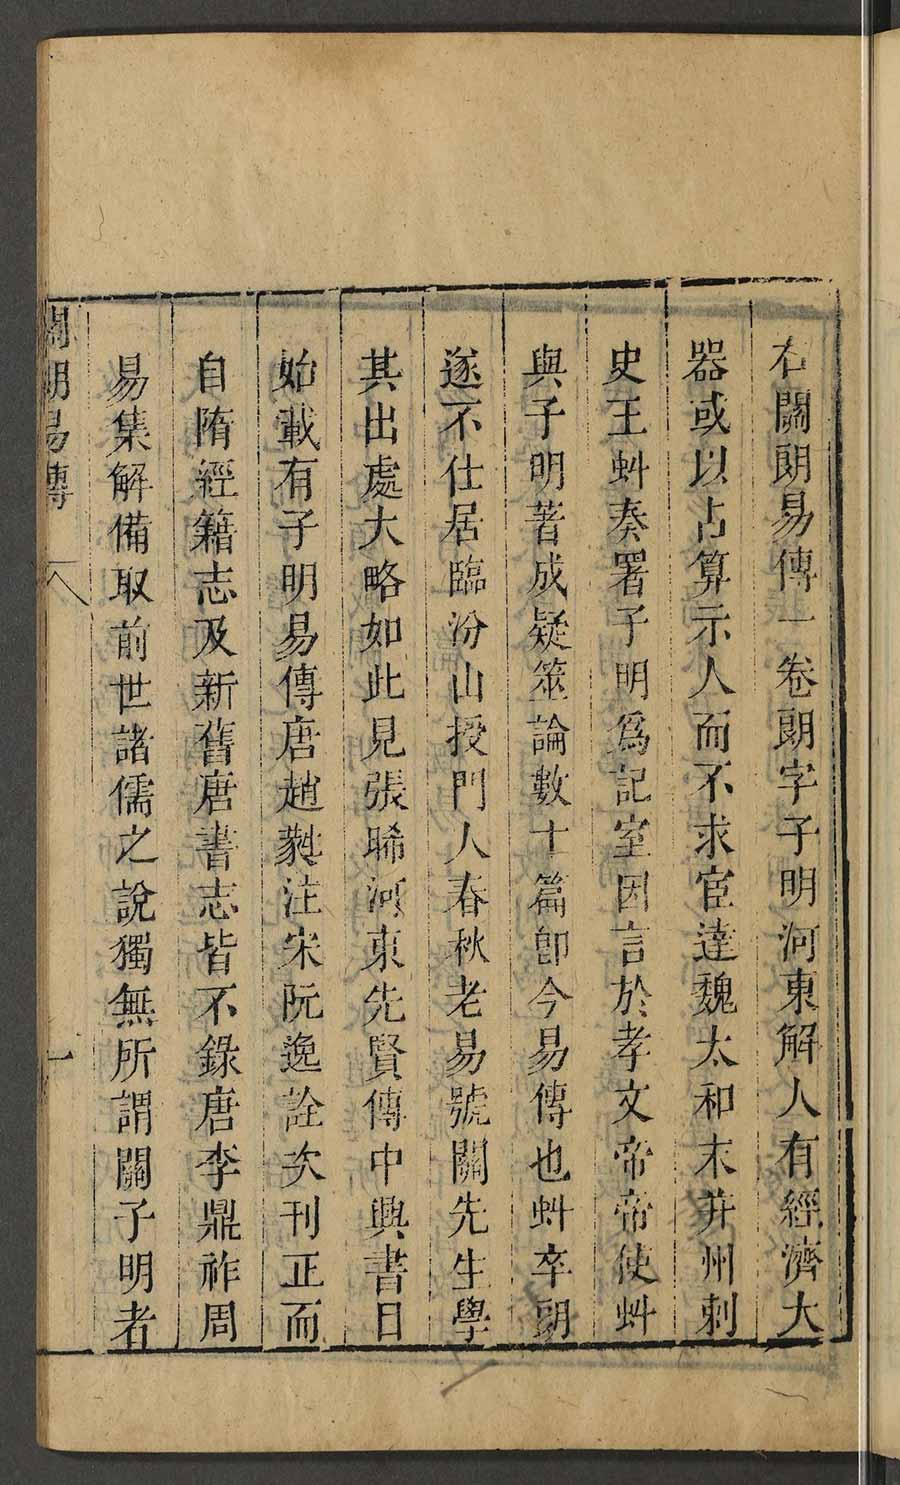 右關朗易傳一卷朗字子明河東解人有經濟大
器或以占算示人而不求宦達魏太和末并州刺
史王蚪奏署子明爲記室因言於孝文帝帝使蚪
與子明著成疑筮論數十篇卽今易傳也蚪卒朗
遂不仕居臨汾山授門人春秋老易號關先生學
其出處大略如此見張晞河東先賢傳中興書目
始載有子明易傳唐趙蕤注宋阮逸詮次刊正而
自隋經籍志及新舊唐書志皆不錄唐李鼎祚周
易集解備取前世諸儒之說獨無所謂關子明者
關朗易傳 一